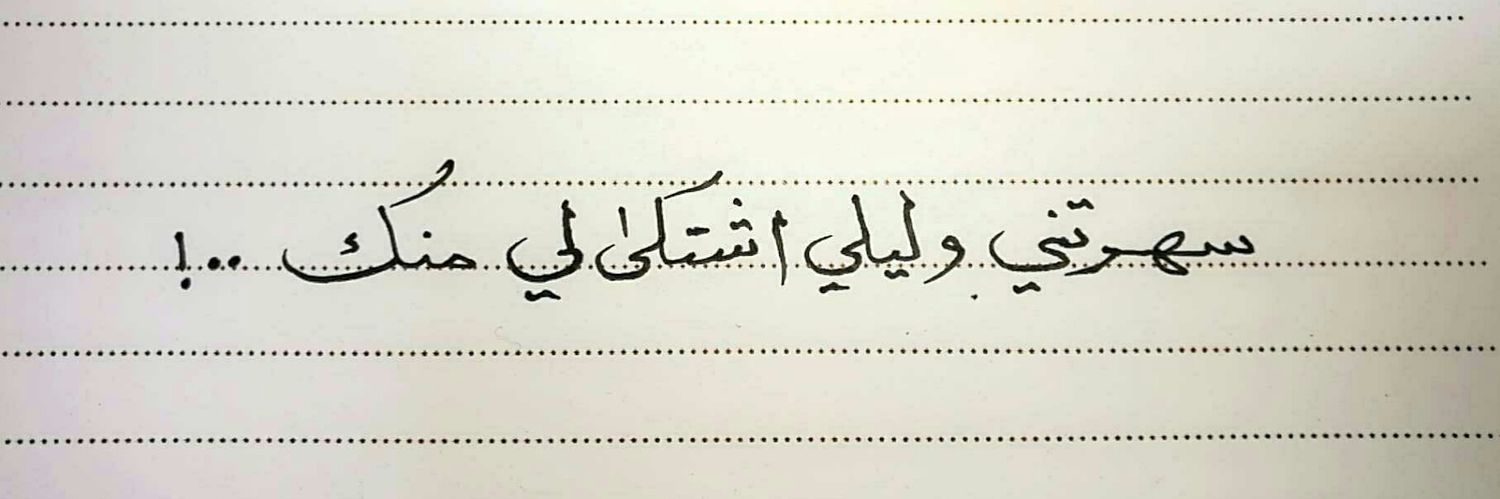 سهرتني وليلي اشتكىٰ لي منك ..!